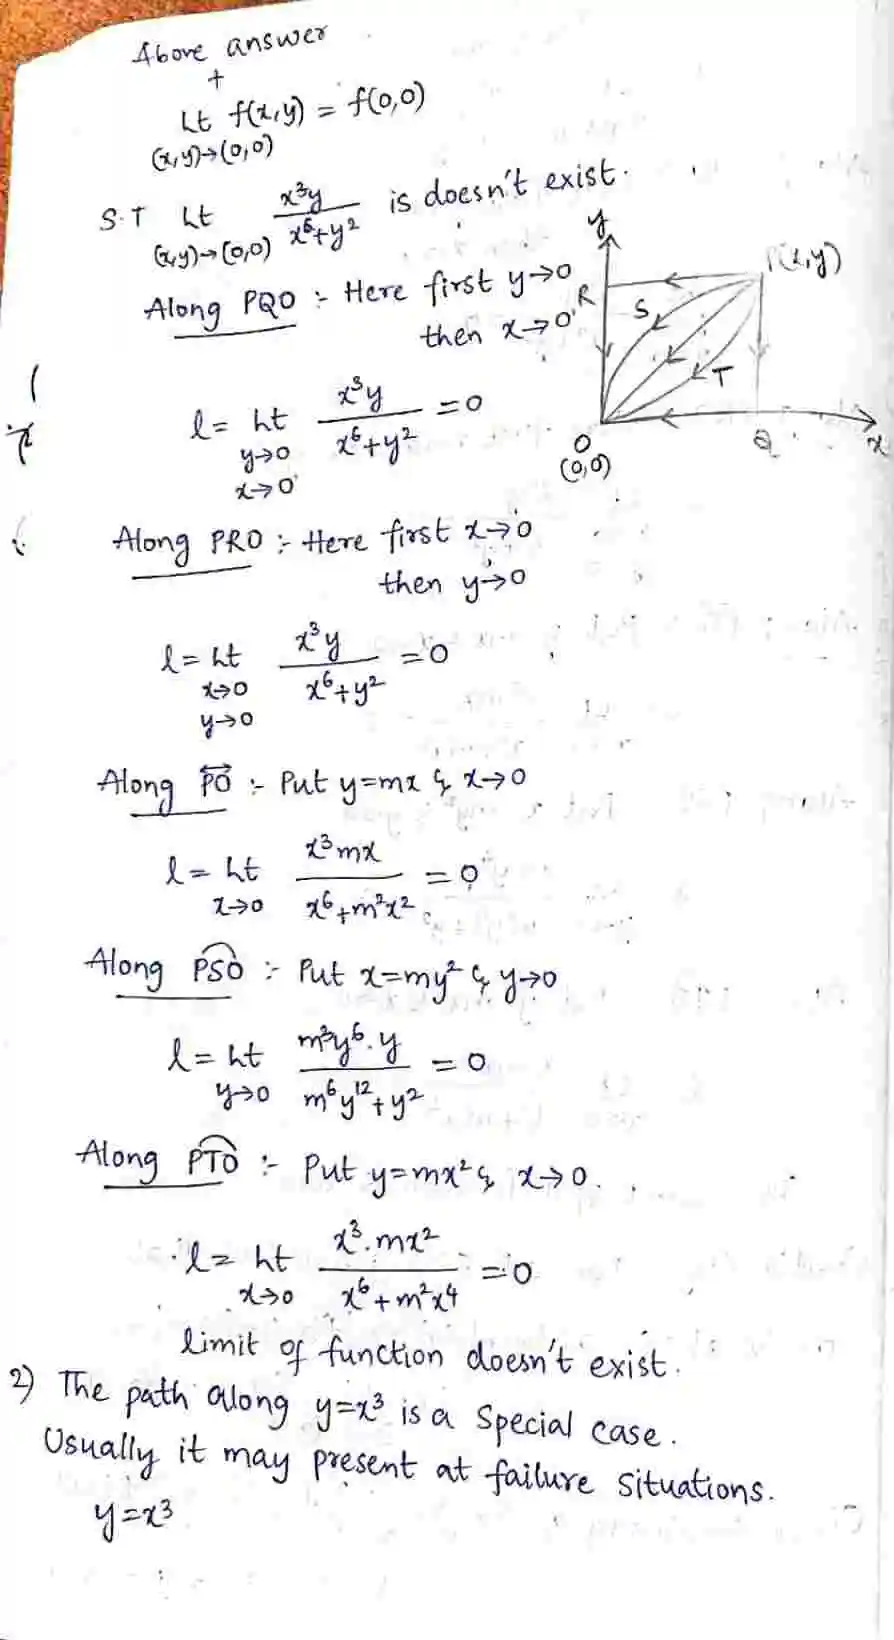 Above answer
+
Lt f(x,y) = f(0,0)
(x,y)→(0,0)
S.T Lt x³y / x⁶+y² is doesn't exist.
(x,y)→(0,0)
Along PQO :- Here first y→0
then x→0
l = Lt x³y / x⁶+y² = 0
y→0
x→0
y
R
S
P(x,y)
T
O
(0,0)
Q
x
Along PRO :- Here first x→0
then y→0
l = Lt x³y / x⁶+y² = 0
x→0
y→0
Along PO :- Put y=mx & x→0
l = Lt x³mx / x⁶+m²x² = 0
x→0
Along PSO :- Put x=my² & y→0
l = Lt m³y⁶.y / m⁶y¹²+y² = 0
y→0
Along PTO :- Put y=mx² & x→0.
l = Lt x³.mx² / x⁶+m²x⁴ = 0
x→0
limit of function doesn't exist.
2) The path along y=x³ is a special case.
Usually it may present at failure situations.
y=x³